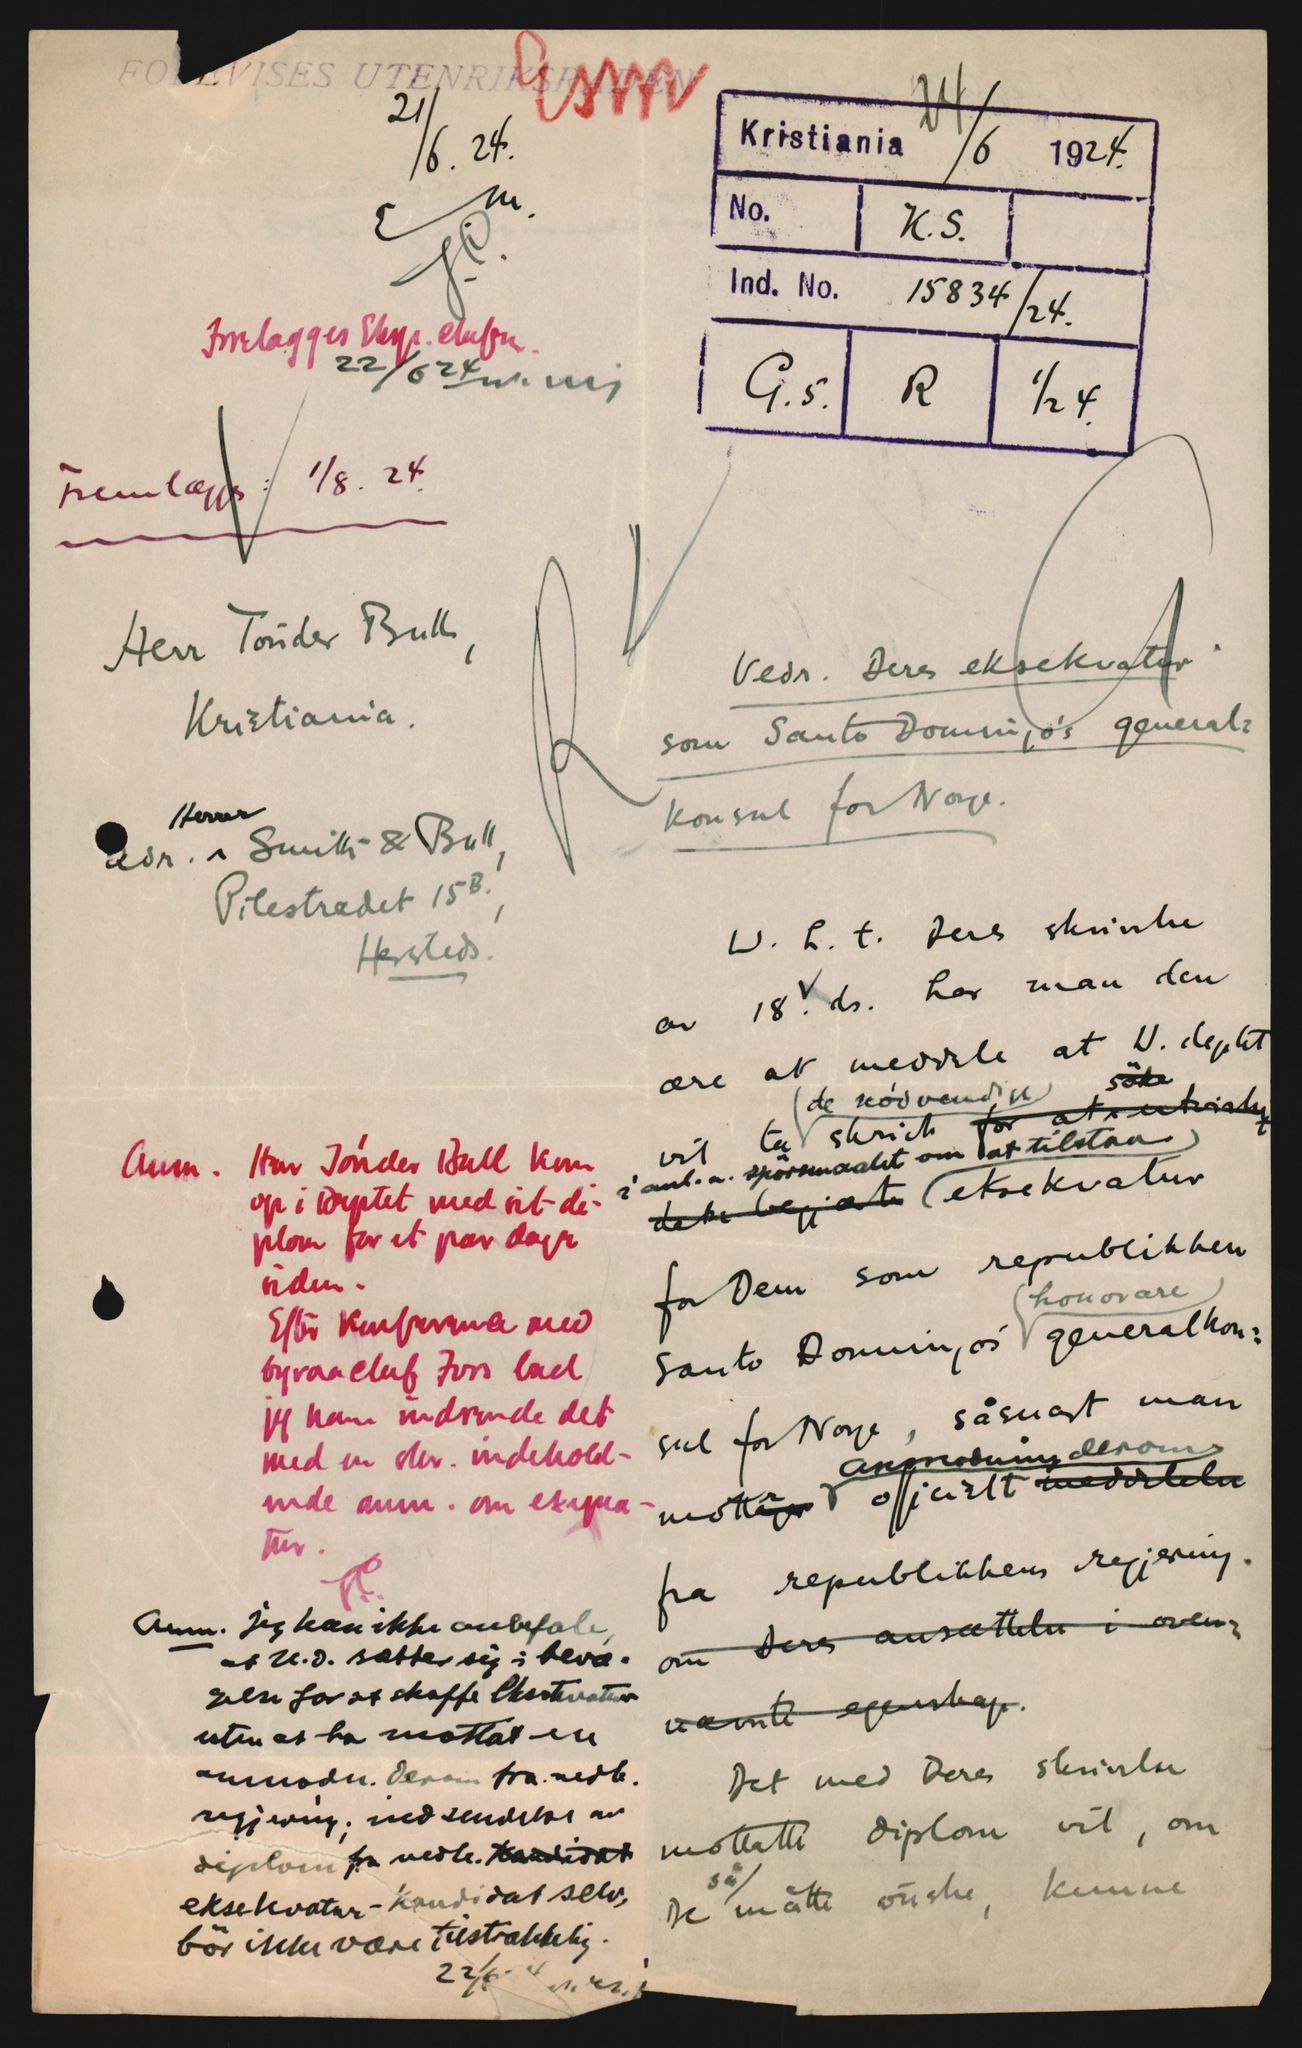 FOREVISES UTENRIKSRAADEN
21/6. 24.
Kristiania 24/6 1924.
No. K.S.
Ind. No. 15834/24.
G.5. R 1/24.
Forelægges Eksp. chefen.
22/6 24
Fremlægges: 1/8. 24.
Herr Tönder Bull,
Kristiania.
Herrer
adr. Smith & Bull,
Pilestrædet 15B.,
Hersteds.
Vedr. Deres eksekvatur
som Santo Domingo's general=
konsul for Norge.
V. h. t. Deres skrivelse
av 18. ds. har man den
ære at meddele at U. deptet
de nödvendige søke
vil ta skridt for at utvirke
i anl. a. spörsmaalet om at tilstaa
dette begjærte eksekvatur
for Dem som republikken
honorære
Santo Domingo's generalkon=
sul for Norge, såsnart man
anmodning derom
mottar officielt meddelelse
fra republikkens regjering.
om Deres ansættelse i oven=
nævnte egenskap.
Det med Deres skrivelse
mottatte diplom vil, om
så
De måtte ønske, kunne
Anm. Herr Tönder Bull kom
op i Deptet med sit di-
plom for et par dage
siden.
Efter konferense med
byraachef Foss bad
jeg ham indsende det
med en skr. indehold-
ende anm. om exequa-
tur.
Anm. Jeg kan ikke anbefale,
at U.D. sætter sig i bevæ-
gelse for at skaffe Eksekvatur
uten at ha mottat en
anmodn. derom fra vedk.
regjering; indsendelse av
diplom fra vedk. kandidat
eksekvatur-kandidat selv,
bör ikke være tilstrækkelig.
22/6